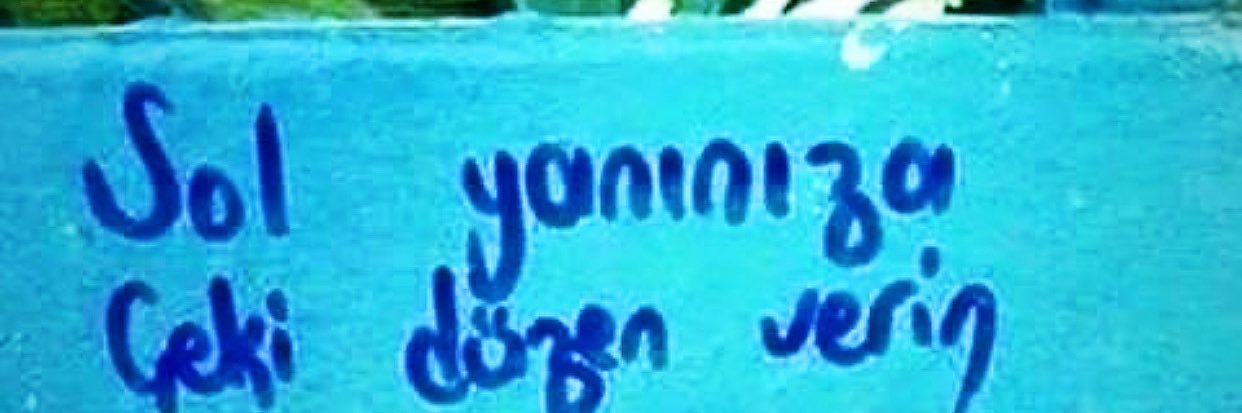 Sol yanınıza
Çeki düzen verin